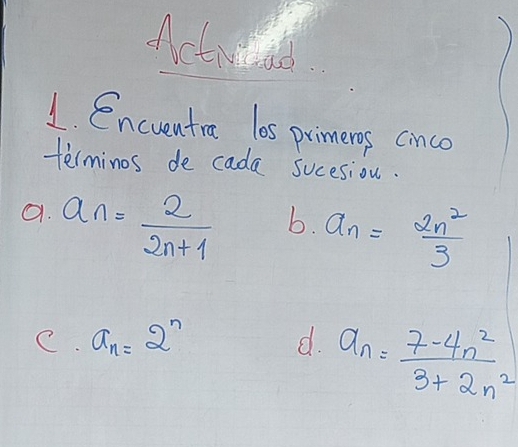 Actividad..
1. Encuentra los primeros cinco
términos de cada sucesion.
a. an = 2/(2n+1) b. an = 2n²/3
c. an = 2ⁿ d. an = (7-4n²)/(3+2n²)